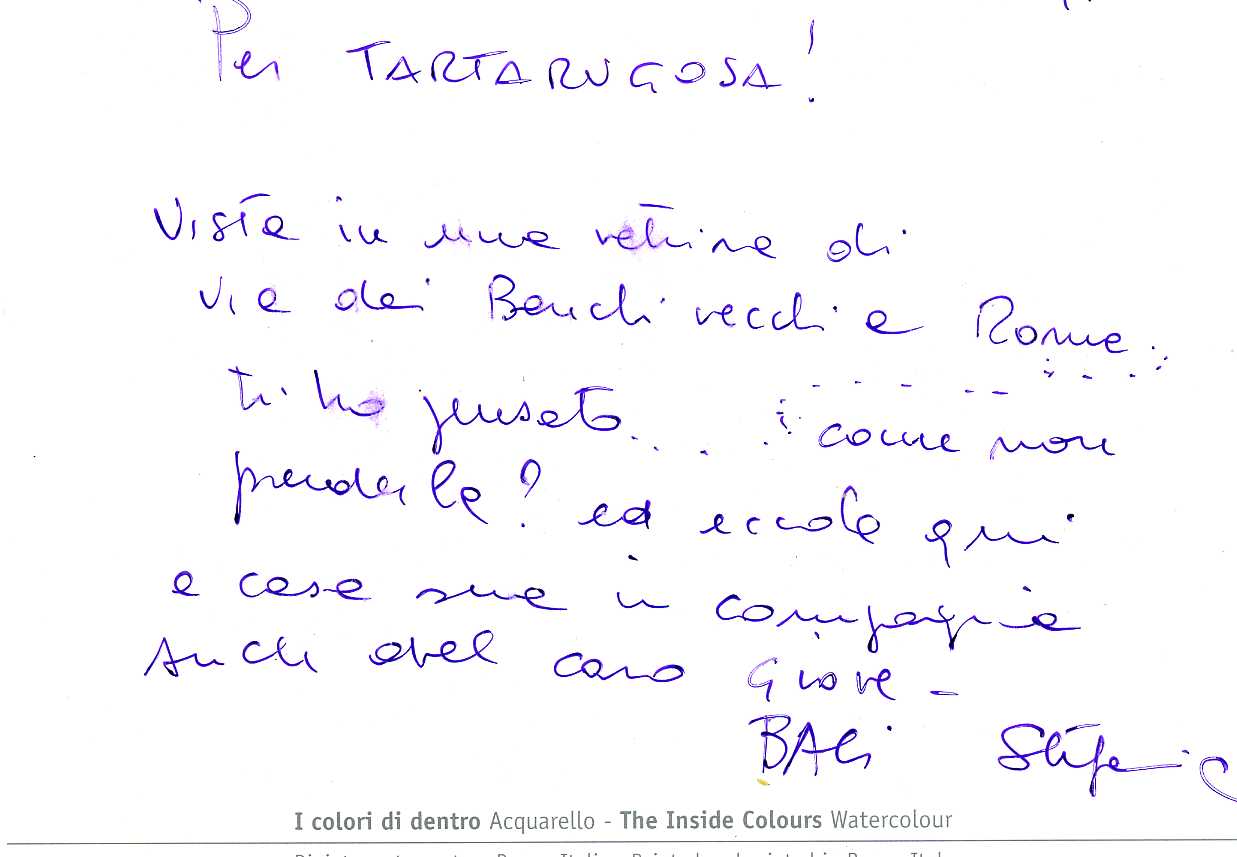 Per TARTARUGOSA!
Vista in una vetrina di
via dei Banchi vecchi a Roma
ti ho pensato.... come non
prenderla? ed eccola qui
a casa sua in compagnia
anche del caro Giove -
BACi Stefania
I colori di dentro Acquarello - The Inside Colours Watercolour